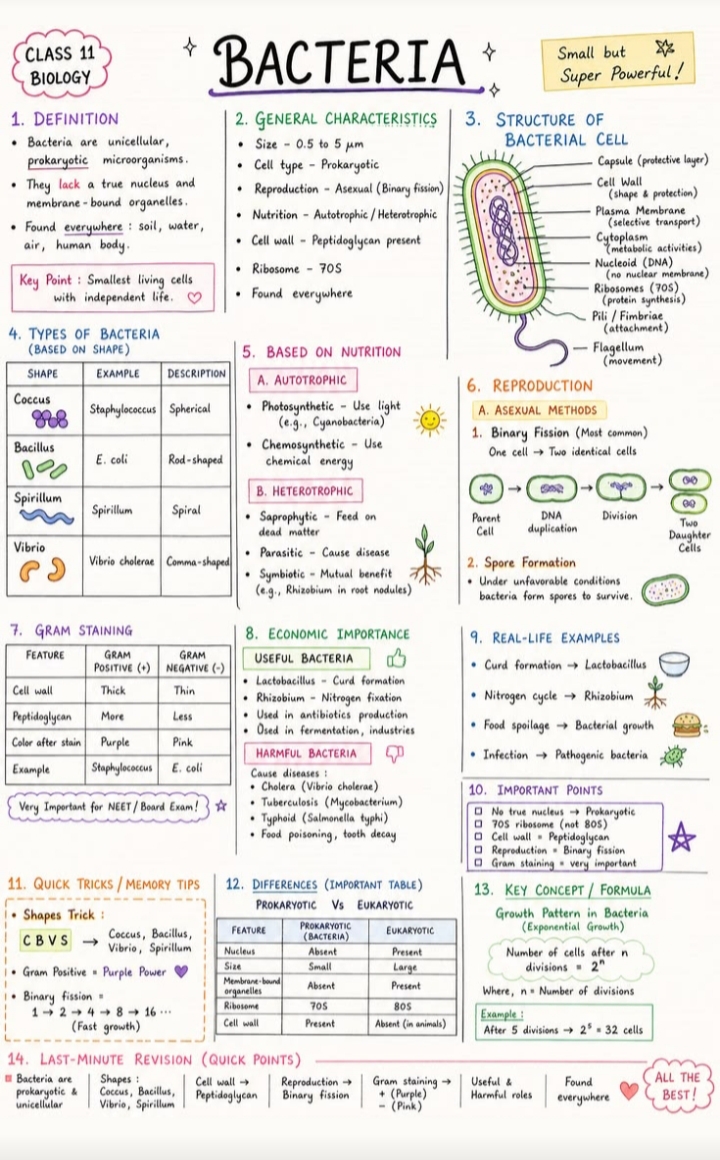 CLASS 11
BIOLOGY
BACTERIA
Small but
Super Powerful!
1. DEFINITION
• Bacteria are unicellular,
prokaryotic microorganisms.
• They lack a true nucleus and
membrane-bound organelles.
• Found everywhere : soil, water,
air, human body.
Key Point : Smallest living cells
with independent life.
2. GENERAL CHARACTERISTICS
• Size – 0.5 to 5 μm
• Cell type – Prokaryotic
• Reproduction – Asexual (Binary fission)
• Nutrition – Autotrophic / Heterotrophic
• Cell wall – Peptidoglycan present
• Ribosome – 70S
• Found everywhere
3. STRUCTURE OF
BACTERIAL CELL
Capsule (protective layer)
Cell Wall
(shape & protection)
Plasma Membrane
(selective transport)
Cytoplasm
(metabolic activities)
Nucleoid (DNA)
(no nuclear membrane)
Ribosomes (70S)
(protein synthesis)
Pili / Fimbriae
(attachment)
Flagellum
(movement)
4. TYPES OF BACTERIA
(BASED ON SHAPE)
SHAPE EXAMPLE DESCRIPTION
Coccus Staphylococcus Spherical
Bacillus E. coli Rod-shaped
Spirillum Spirillum Spiral
Vibrio Vibrio cholerae Comma-shaped
5. BASED ON NUTRITION
A. AUTOTROPHIC
• Photosynthetic – Use light
(e.g., Cyanobacteria)
• Chemosynthetic – Use
chemical energy
B. HETEROTROPHIC
• Saprophytic – Feed on
dead matter
• Parasitic – Cause disease
• Symbiotic – Mutual benefit
(e.g., Rhizobium in root nodules)
6. REPRODUCTION
A. ASEXUAL METHODS
1. Binary Fission (Most common)
One cell → Two identical cells
Parent
Cell
DNA
duplication
Division
Two
Daughter
Cells
2. Spore Formation
• Under unfavorable conditions
bacteria form spores to survive.
7. GRAM STAINING
FEATURE GRAM POSITIVE (+) GRAM NEGATIVE (-)
Cell wall Thick Thin
Peptidoglycan More Less
Color after stain Purple Pink
Example Staphylococcus E. coli
Very Important for NEET / Board Exam!
8. ECONOMIC IMPORTANCE
USEFUL BACTERIA
• Lactobacillus – Curd formation
• Rhizobium – Nitrogen fixation
• Used in antibiotics production
• Used in fermentation, industries
HARMFUL BACTERIA
Cause diseases :
• Cholera (Vibrio cholerae)
• Tuberculosis (Mycobacterium)
• Typhoid (Salmonella typhi)
• Food poisoning, tooth decay
9. REAL-LIFE EXAMPLES
• Curd formation → Lactobacillus
• Nitrogen cycle → Rhizobium
• Food spoilage → Bacterial growth
• Infection → Pathogenic bacteria
10. IMPORTANT POINTS
☐ No true nucleus → Prokaryotic
☐ 70S ribosome (not 80S)
☐ Cell wall = Peptidoglycan
☐ Reproduction = Binary fission
☐ Gram staining = very important
11. QUICK TRICKS / MEMORY TIPS
• Shapes Trick :
C B V S → Coccus, Bacillus,
Vibrio, Spirillum
• Gram Positive = Purple Power
• Binary fission =
1 → 2 → 4 → 8 → 16 ...
(Fast growth)
12. DIFFERENCES (IMPORTANT TABLE)
PROKARYOTIC Vs EUKARYOTIC
FEATURE PROKARYOTIC (BACTERIA) EUKARYOTIC
Nucleus Absent Present
Size Small Large
Membrane-bound organelles Absent Present
Ribosome 70S 80S
Cell wall Present Absent (in animals)
13. KEY CONCEPT / FORMULA
Growth Pattern in Bacteria
(Exponential Growth)
Number of cells after n
divisions = 2ⁿ
Where, n = Number of divisions
Example :
After 5 divisions → 2⁵ = 32 cells
14. LAST-MINUTE REVISION (QUICK POINTS)
Bacteria are
prokaryotic &
unicellular
Shapes :
Coccus, Bacillus,
Vibrio, Spirillum
Cell wall →
Peptidoglycan
Reproduction →
Binary fission
Gram staining →
+ (Purple)
– (Pink)
Useful &
Harmful roles
Found
everywhere
ALL THE
BEST!